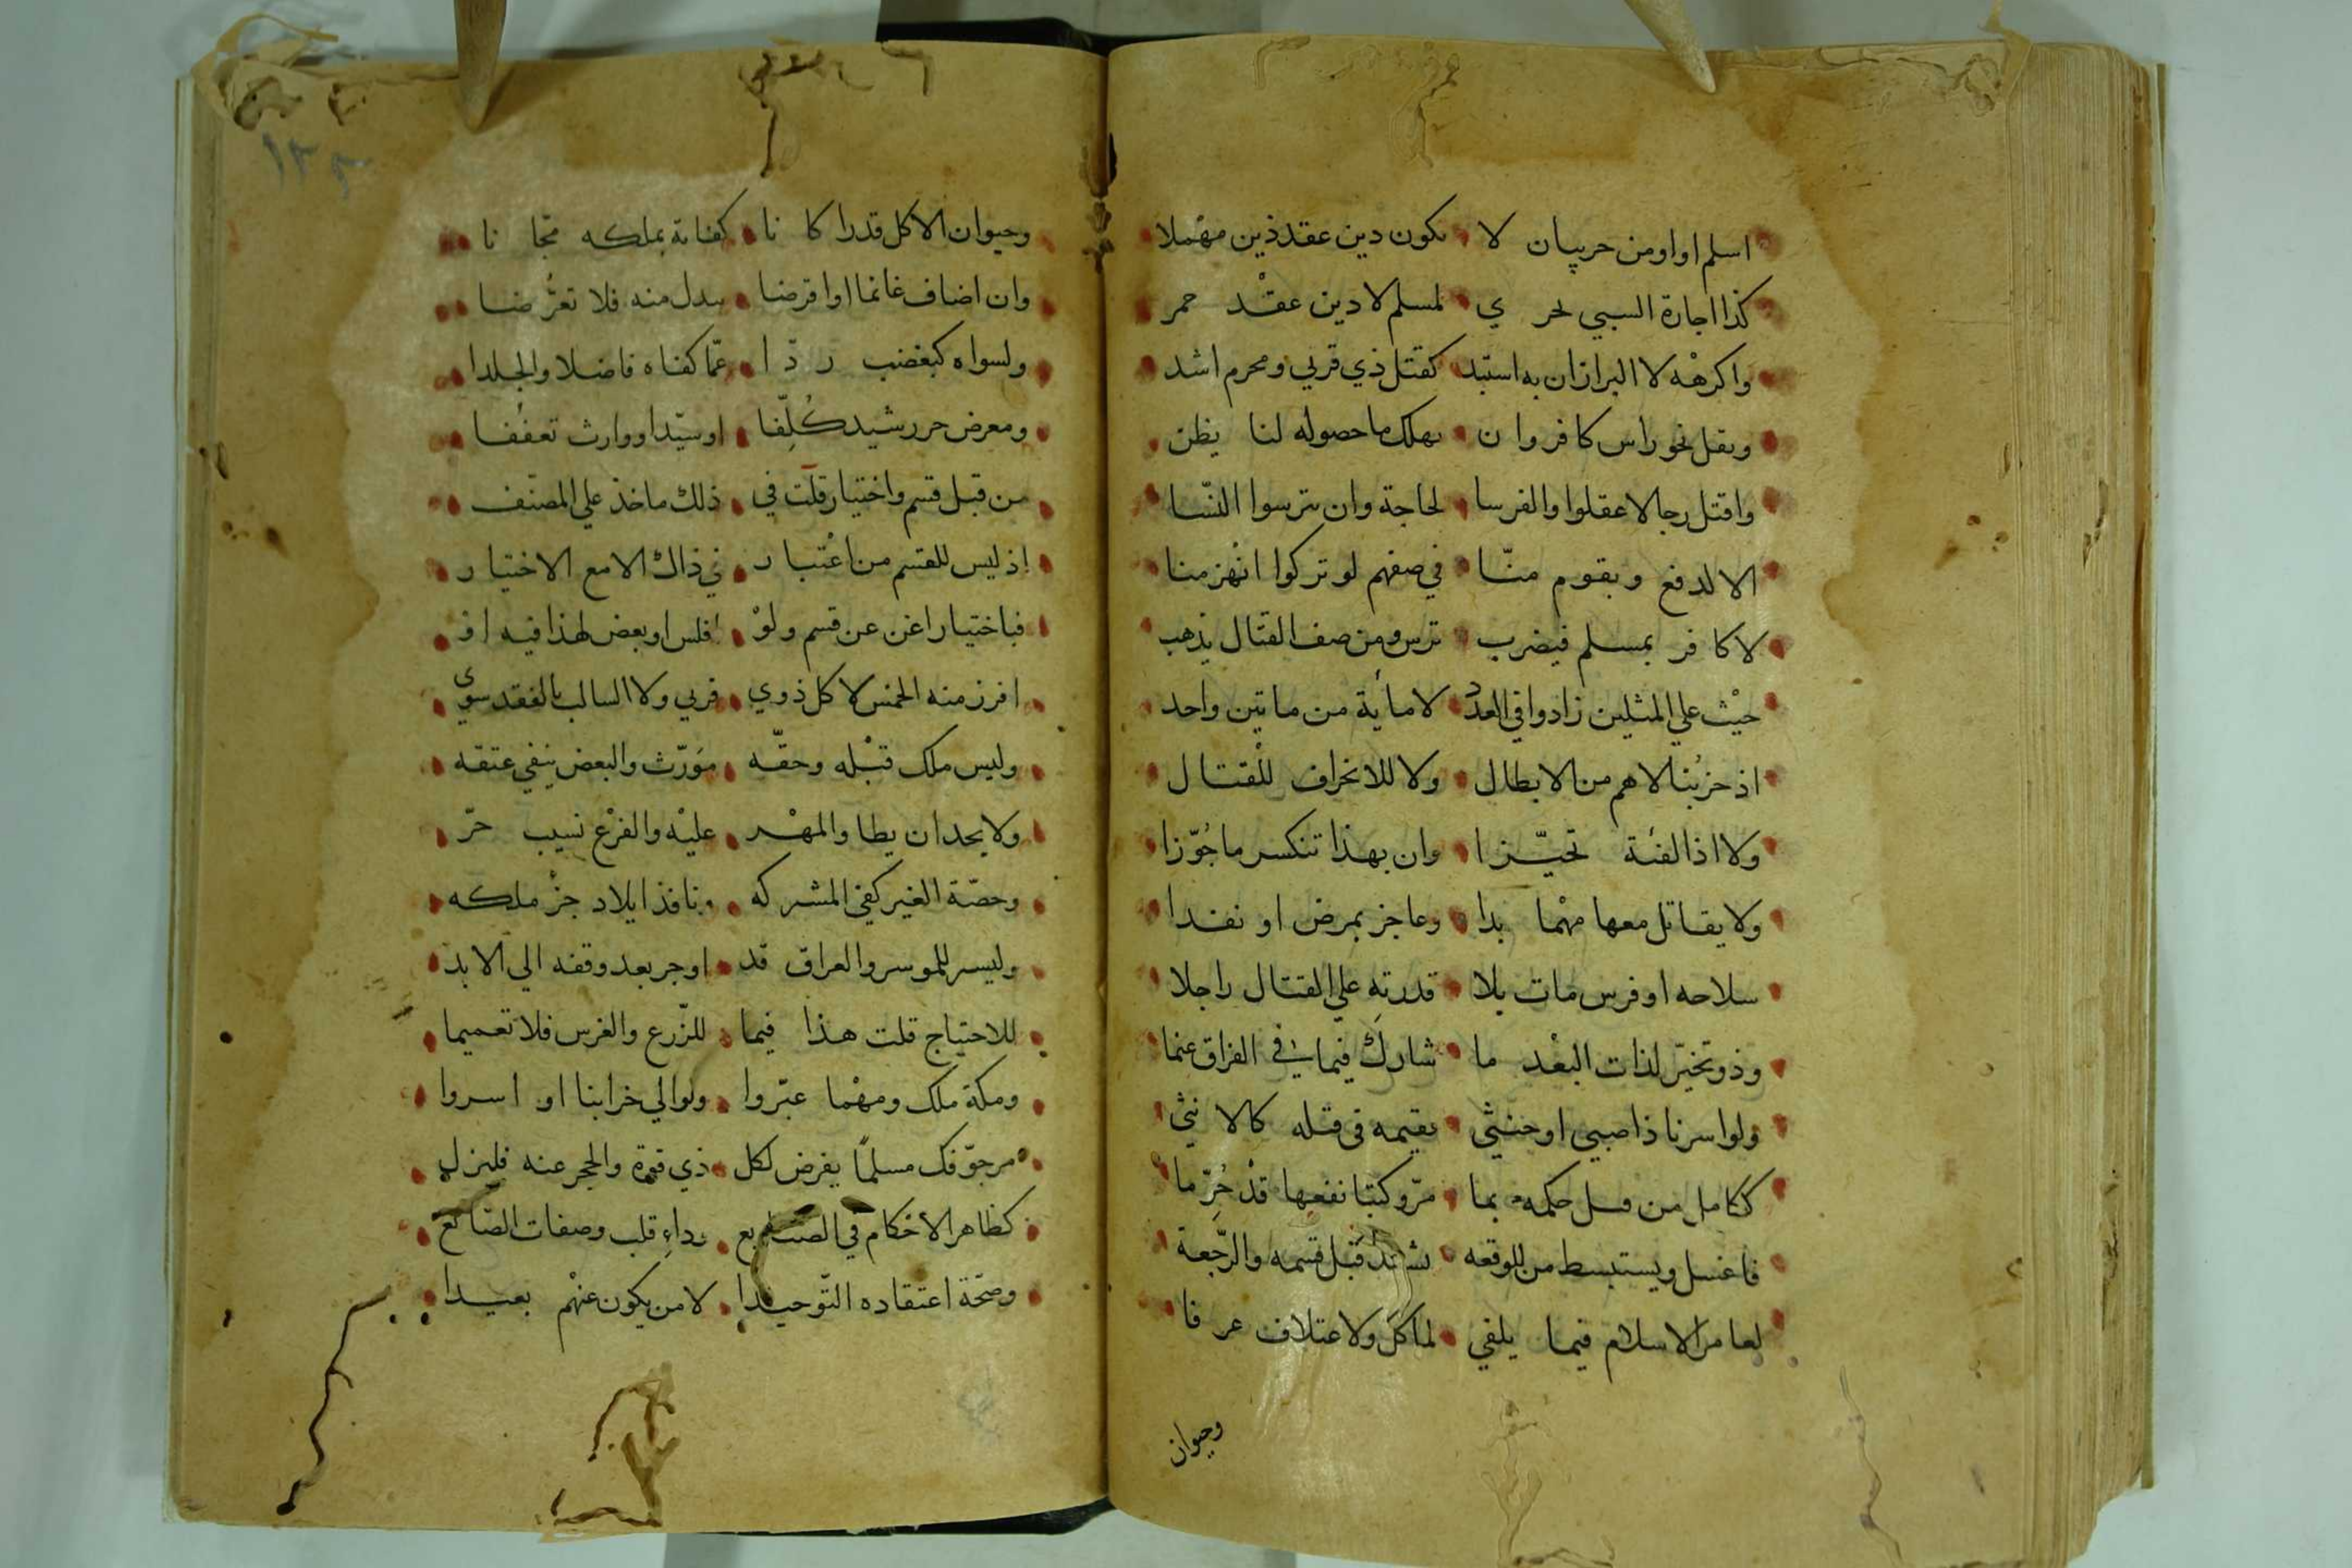 اسلم او اومن حربيان لا يكون دين عقد ذين مهملا
كذا اجارة السبي لحر ي لمسلم لا دين عقد خمر
واكرهه لا البراز ان به استبد كقتل ذي قربي ومحرم اشد
ونقل نحو راس كافر وان نهلك ما حصوله لنا يظن
واقتل رجالا عقلوا والفرسا لحاجة وان تترسوا النسا
الا لدفع وبقوم منا في صفهم لو تركوا انهزمنا
لا كافر بمسلم فيضرب ترس ومن صف القتال يذهب
حيث علي المثلين زادوا في العدد لا ماية من ماتين واحد
اذ حزبنا لاهم من الابطال ولا للانحراف للقتال
ولا اذا لفئة تحيزا وان بهذا تنكسر ما جوزا
ولا يقاتل معها مهما بدا وعاجز بمرض او نفدا
سلاحه او فرس مات بلا قدرته علي القتال راجلا
وذو تحيز لذات البعد ما شارك فيما في الفراق غنما
ولو اسرنا ذا صبي او خنثي نقيمه في قتله كالانثي
ككامل من قبل حكمه بما مر وكتبا نفعها قد حرما
فاغسل ويستبسط من للوقعه شهد قبل قسمه والرجعة
لعامر الاسلام فيما يلفي لماكل ولاعتلاف عرفا
وحيوان
١٢٣
وحيوان الاكل قدرا كانا كفاية بملكه مجانا
وان اضاف غانما او اقرضا ببدل منه فلا تعرضا
ولسواه كبغضب ردا عما كفاه فاضلا والجلدا
ومعرض حر رشيد كلفا او سيدا ووارث تعففا
من قبل قسم واختيار قلت في ذلك ماخذ علي المصنف
اذ ليس للقسم من اعتبار في ذاك الا مع الاختيار
فباختيار اغن عن قسم ولو افلس او بعض لهذا فيه او
افرز منه الخمس لا كل ذوي قربي ولا السالب بالفقد سوي
وليس ملك قبله وحقه مورث والبعض ينفي عتقه
ولا يحد ان يطا والمهر عليه والفرع نسيب حر
وحصة الغير كفي المشركه ونافذ ايلاد جزء ملكه
وليسر للموسر والعراق قد اوجر بعد وقفه الي الابد
للاحتياج قلت هذا فيما للزرع والغرس فلا تعميما
ومكة ملك ومهما عبروا ولو الي خرابنا او اسروا
مرجو فك مسلما يفرض لكل ذي قوة والحجر عنه فليزل
كظاهر الاحكام في الصنايع وداء قلب وصفات الصانع
وصحة اعتقاده التوحيدا لا من يكون عنهم بعيدا